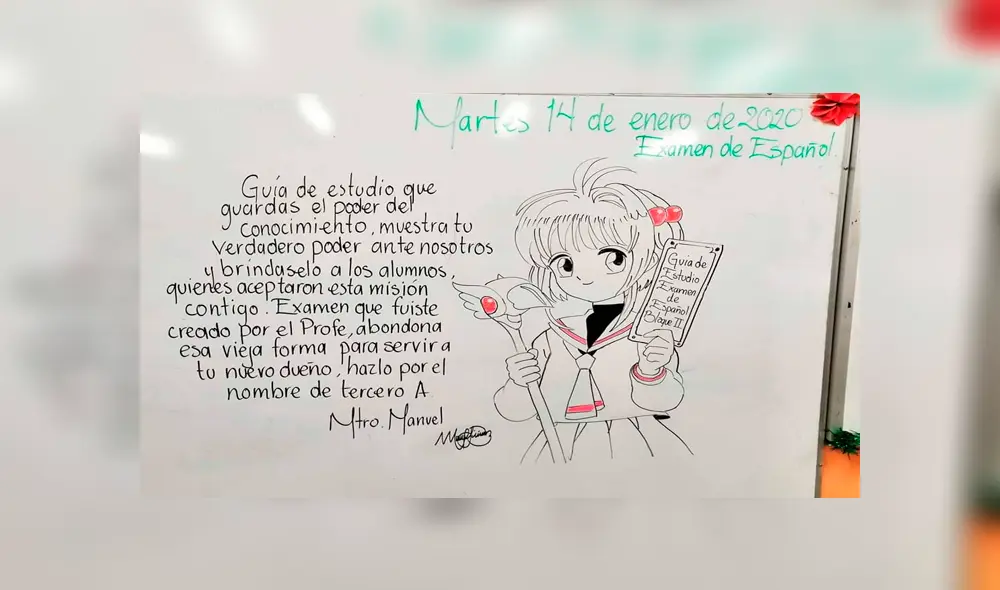 Martes 14 de enero de 2020
Examen de Español
Guía de estudio que
guardas el poder del
conocimiento, muestra tu
verdadero poder ante nosotros
y bríndaselo a los alumnos,
quienes aceptaron esta misión
contigo. Examen que fuiste
creado por el Profe, abondona
esa vieja forma para servir a
tu nuevo dueño, hazlo por el
nombre de tercero A
Mtro. Manuel
Guía de
Estudio
Examen
de
Español
Bloque II